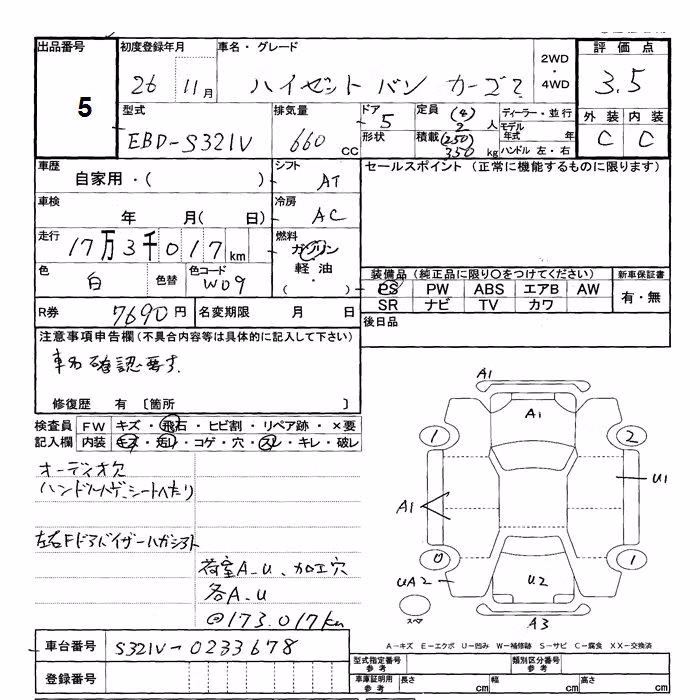 出品番号 初度登録年月 車名・グレード 2WD・4WD 評価点
5 26 11月 ハイゼット バン カーゴ 3.5
型式 排気量 ドア 定員 (4) 2 人 ディーラー・並行 外装 内装
EBD-S321V 660 CC 5 形状 積載 (250) 350 kg モデル年式 年 ハンドル 左・右 C C
車歴 自家用・( ) シフト AT セールスポイント (正常に機能するものに限ります)
車検 年 月( 日) 冷房 AC
走行 17万3千017km 燃料 ガソリン 軽油 ( )
色 白 色替 色コード W09 装備品 (純正品に限り〇をつけてください) 新車保証書
PS PW ABS エアB AW 有・無
SR ナビ TV カワ
R券 7690円 名変期限 月 日 後日品
注意事項申告欄(不具合内容等は具体的に記入して下さい)
車両確認要す.
修復歴 有 〔箇所 〕
検査員 FW キズ・飛石・ヒビ割・リペア跡・×要
記入欄 内装 キズ・汚れ・コゲ・穴・スレ・キレ・破レ
オーディオ欠
ハンドルハゲ、シートヘたり
左右Fドアバイザーハガシアト
荷室A.U、加工穴
各A.U
@173.017km
A1
A1
1 2
A1 U1
0 1
UA2 U2
スペア A3
車台番号 S321V-0233678
A－キズ E－エクボ U－凹み W－補修跡 S－サビ C－腐食 XX－交換済
登録番号
型式指定番号 参考 類別区分番号 参考
車庫証明用 参考 長さ cm 幅 cm 高さ cm